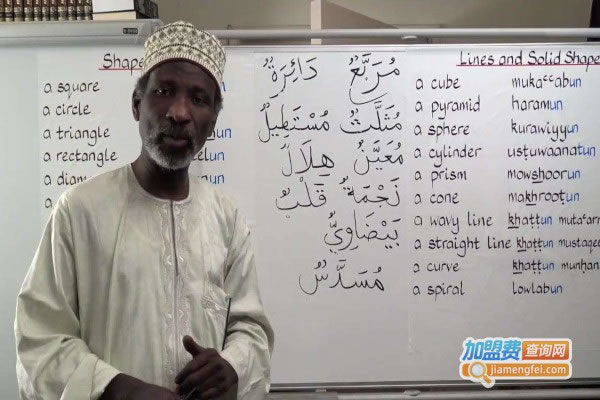 Shape
a square
a circle
a triangle
a rectangle
a diam
a
un
elun
un
un
مُرَبَّعٌ دَائِرَةٌ
مُثَلَّثٌ مُسْتَطِيلٌ
مُعَيَّنٌ هِلَالٌ
نَجْمَةٌ قَلْبٌ
بَيْضَاوِيٌّ
مُسَدَّسٌ
Lines and Solid Shape
a cube mukaᶜᶜabun
a pyramid haramun
a sphere kurawiyyun
a cylinder usṭuwaanatun
a prism mowshoorun
a cone makhrooṭun
a wavy line khaṭṭun mutaᶜarr
a straight line khaṭṭun mustaqee
a curve khaṭṭun munḥan
a spiral lowlabun
加盟费查询网
jiamengfei.com